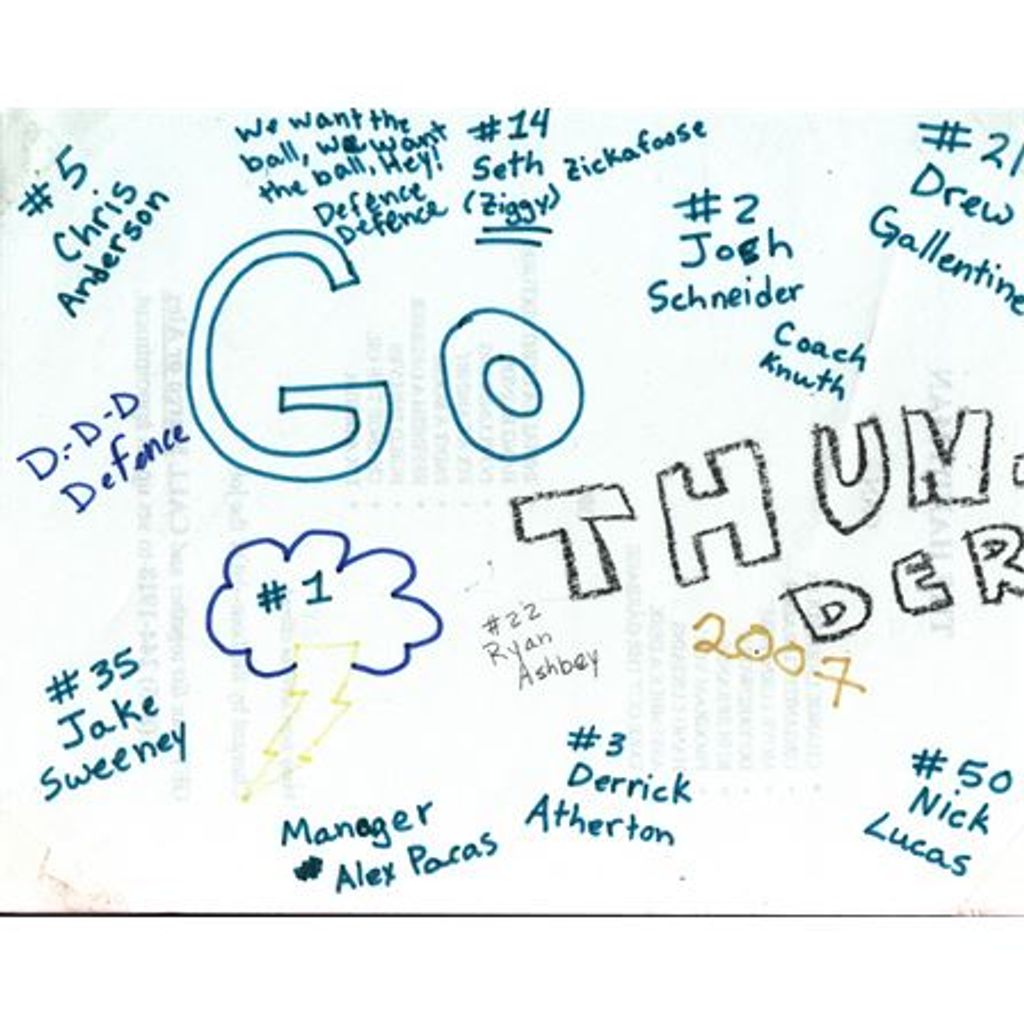 #5
Chris
Anderson
We want the
ball, we want
the ball, Hey!
Defence
Defence
#14
Seth
(Ziggy)
Zickafoose
#2
Josh
Schneider
#21
Drew
Gallentine
Coach
Knuth
Go
D-D-D
Defence
THUN-
DER
2007
#1
#22
Ryan
Ashbey
#35
Jake
Sweeney
Manager
Alex Pacas
#3
Derrick
Atherton
#50
Nick
Lucas